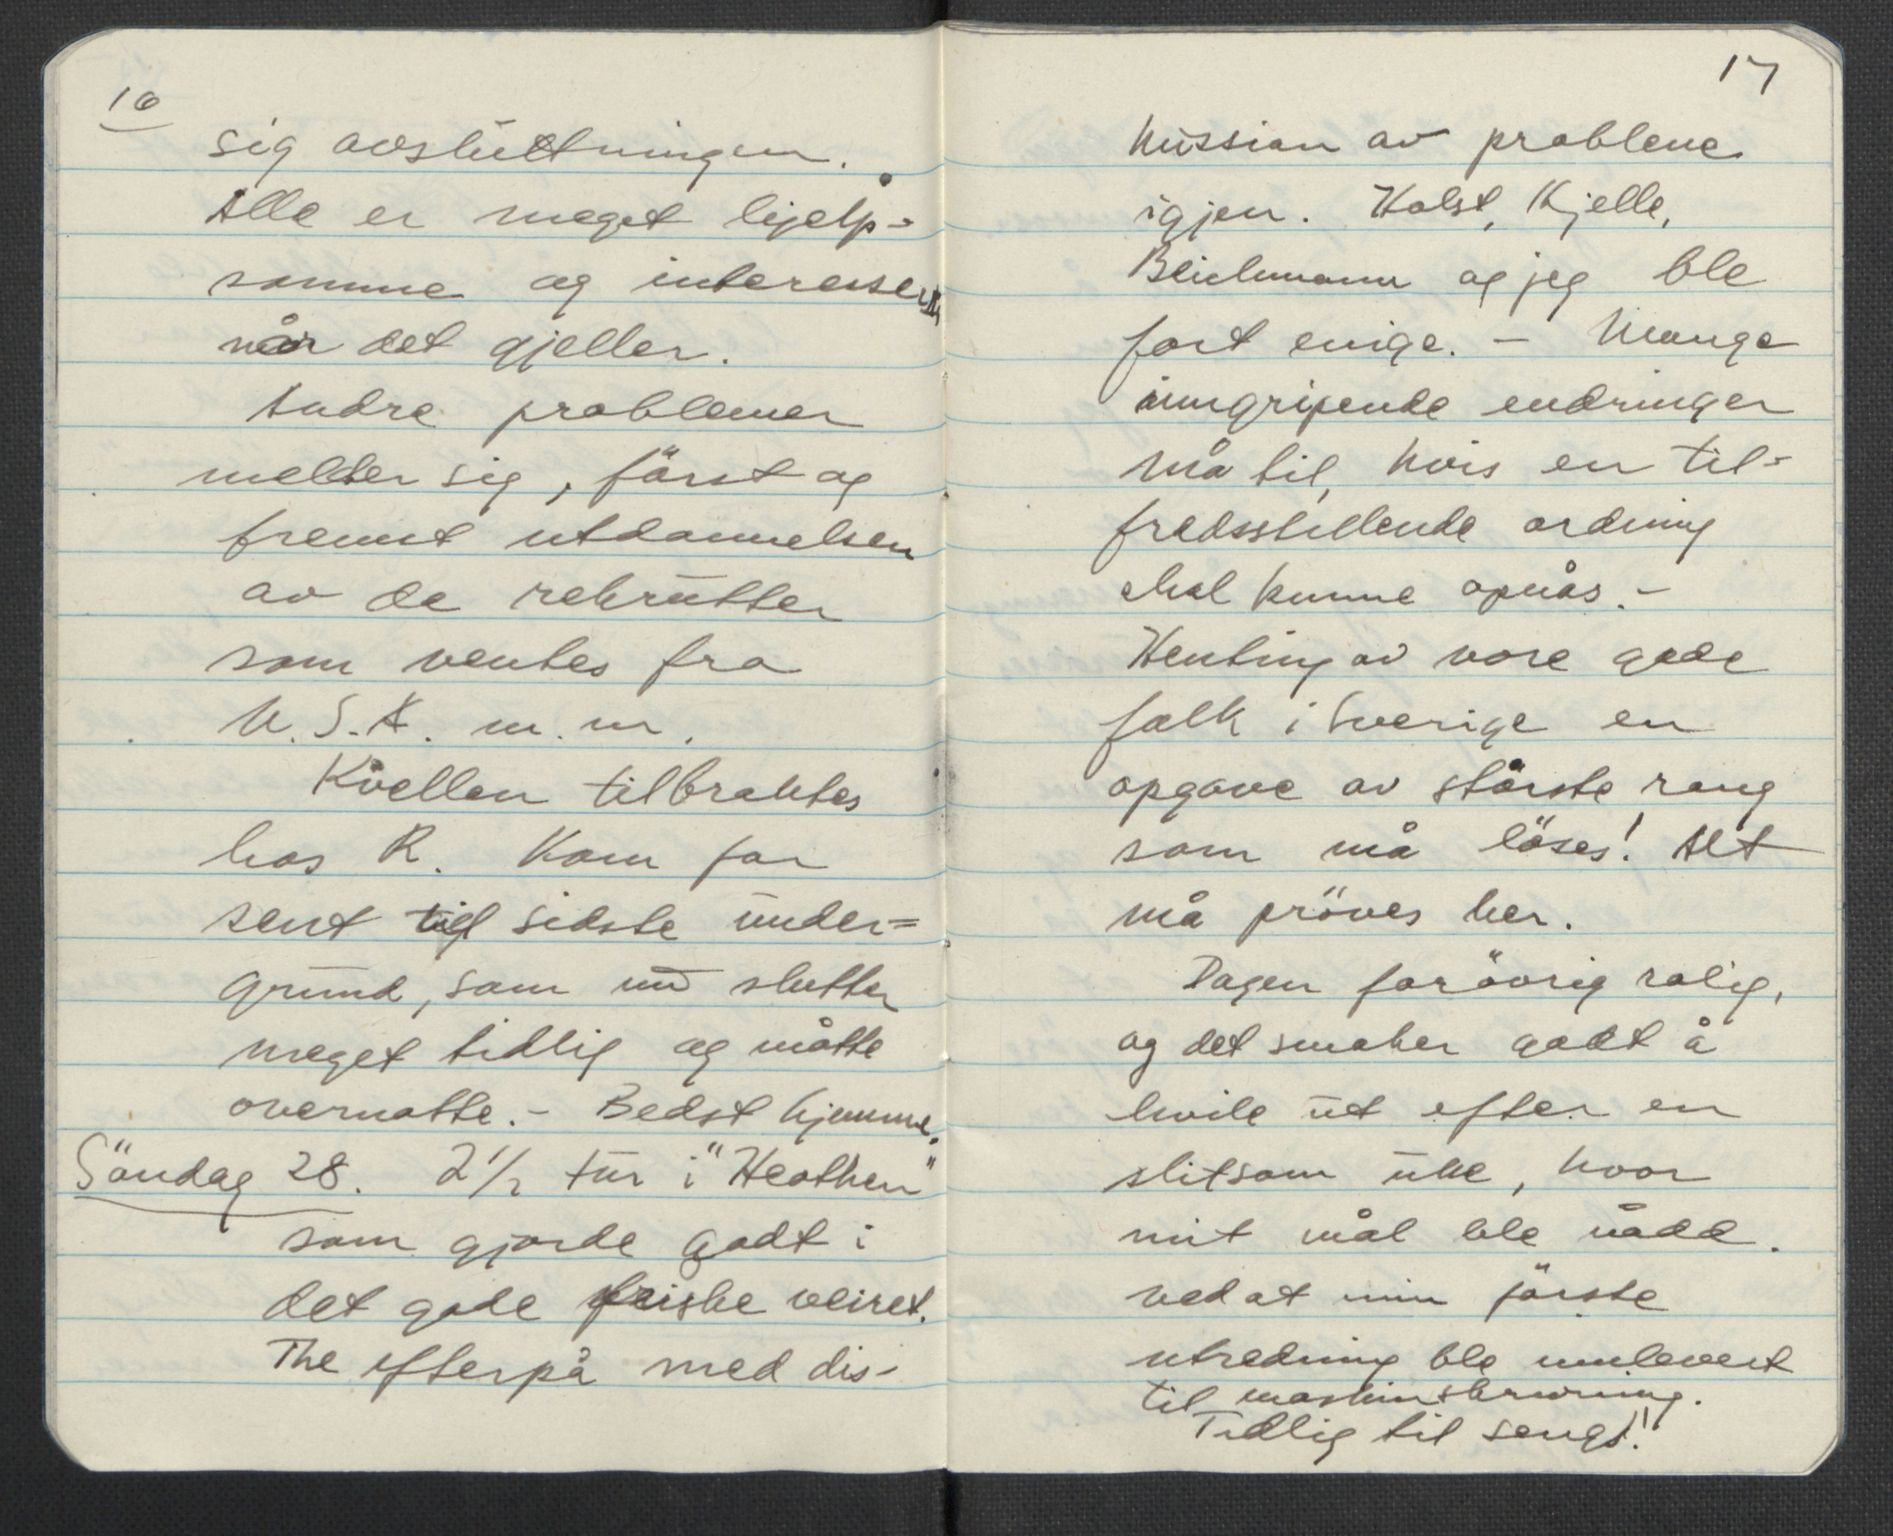 16
sig avsluttningen.
Alle er meget hjelp-
somme og interesserte,
når det gjeller.
Andre problemer
melder sig, först og
fremst utdannelsen
av de rekrutter
som ventes fra
U.S.A. m.m.
Kvellen tilbraktes
hos R. Kom for
sent til sidste under=
grund, som nu slutter
meget tidlig og måtte
overnatte. - Bedst hjemme.
Söndag 28. 2 1/2 tur i "Heathen"
som gjorde godt i
det gode friske veiret.
The efterpå med dis-
17
kussion av problene
igjen. Holst, Kjelle,
Beichmann og jeg ble
fort enige. - Mange
inngripende endringer
må til, hvis en til-
fredsstillende ordning
skal kunne opnås. -
Henting av vore gode
folk i Sverige en
opgave av störste rang
som må löses! Alt
må pröves her.
Dagen forövrig rolig,
og det smaker godt å
hvile ut efter en
slitsom uke, hvor
mit mål ble nådd.
ved at min förste
utredning ble innlevert
til maskinskrivning.
Tidlig til sengs!